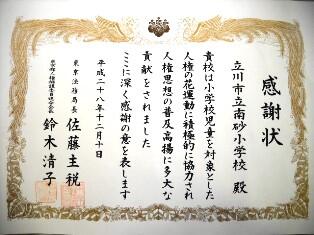 感謝状
立川市立南砂小学校 殿
貴校は小学校児童を対象とした
人権の花運動に積極的に協力され
人権思想の普及高揚に多大な
貢献をされました
ここに深く感謝の意を表します
平成二十八年十二月十日
東京法務局長 佐藤主税
鈴木清子